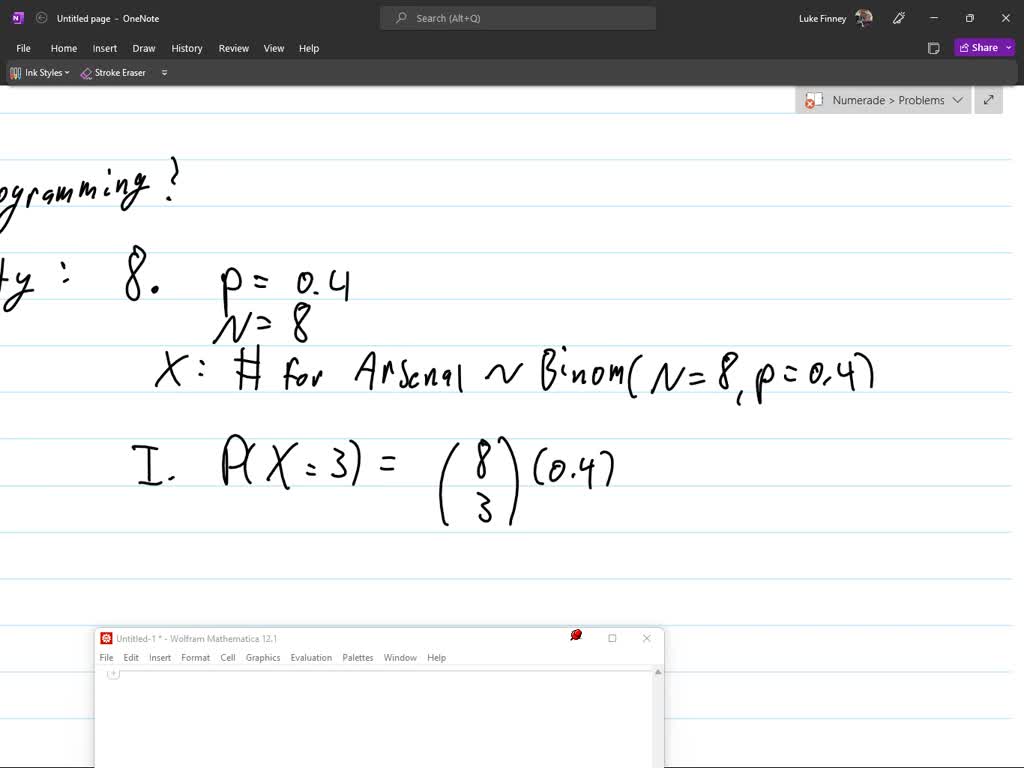 Untitled page - OneNote
Search (Alt+Q)
Luke Finney
File Home Insert Draw History Review View Help
Share
Ink Styles Stroke Eraser
Numerade > Problems
ogramming?
ty: 8. p = 0.4
N = 8
X: # for Arsenal ~ Binom(N=8, p=0.4)
I. P(X=3) = (8 3) (0.4)
Untitled-1 * - Wolfram Mathematica 12.1
File Edit Insert Format Cell Graphics Evaluation Palettes Window Help